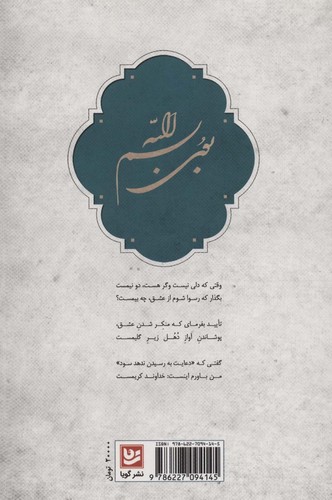 یعنی بسم الله
وقتی که دلی نیست وگر هست، دو نیمست
بگذار که رسوا شوم از عشق، چه بیمست؟
تأیید بفرمای که منکِر شدنِ عشق،
پوشاندنِ آوازِ دُهُل زیرِ گلیمست
گفتی که «دعایت به رسیدن ندهد سود»
من باورم اینست: خداوند کریمست
۳۰۰۰۰ تومان
ISBN: 978-622-7094-14-5
9 786227 094145
نشر گویا